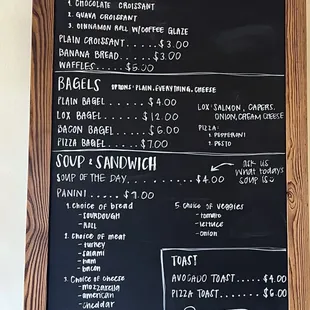 1. CHOCOLATE CROISSANT
2. GUAVA CROISSANT
3. CINNAMON ROLL W/COFFEE GLAZE
PLAIN CROISSANT......$3.00
BANANA BREAD....$3.00
WAFFLES.....$5.00
BAGELS OPTIONS: PLAIN, EVERYTHING, CHEESE
PLAIN BAGEL.....$4.00
LOX BAGEL......$12.00
BACON BAGEL.....$6.00
PIZZA BAGEL.....$7.00
LOX: SALMON, CAPERS,
ONION, CREAM CHEESE
PIZZA:
1. PEPPERONI
2. PESTO
SOUP & SANDWICH
SOUP OF THE DAY..........$4.00
ask us
what today's
soup is
PANINI.....$9.00
1. Choice of bread
- SOURDOUGH
- ROLL
2. Choice of meat
- turkey
- salami
- ham
- bacon
3. Choice of cheese
- mozzarella
- american
- cheddar
5. Choice of veggies
- tomato
- lettuce
- onion
TOAST
AVOCADO TOAST.....$4.00
PIZZA TOAST.....$6.00